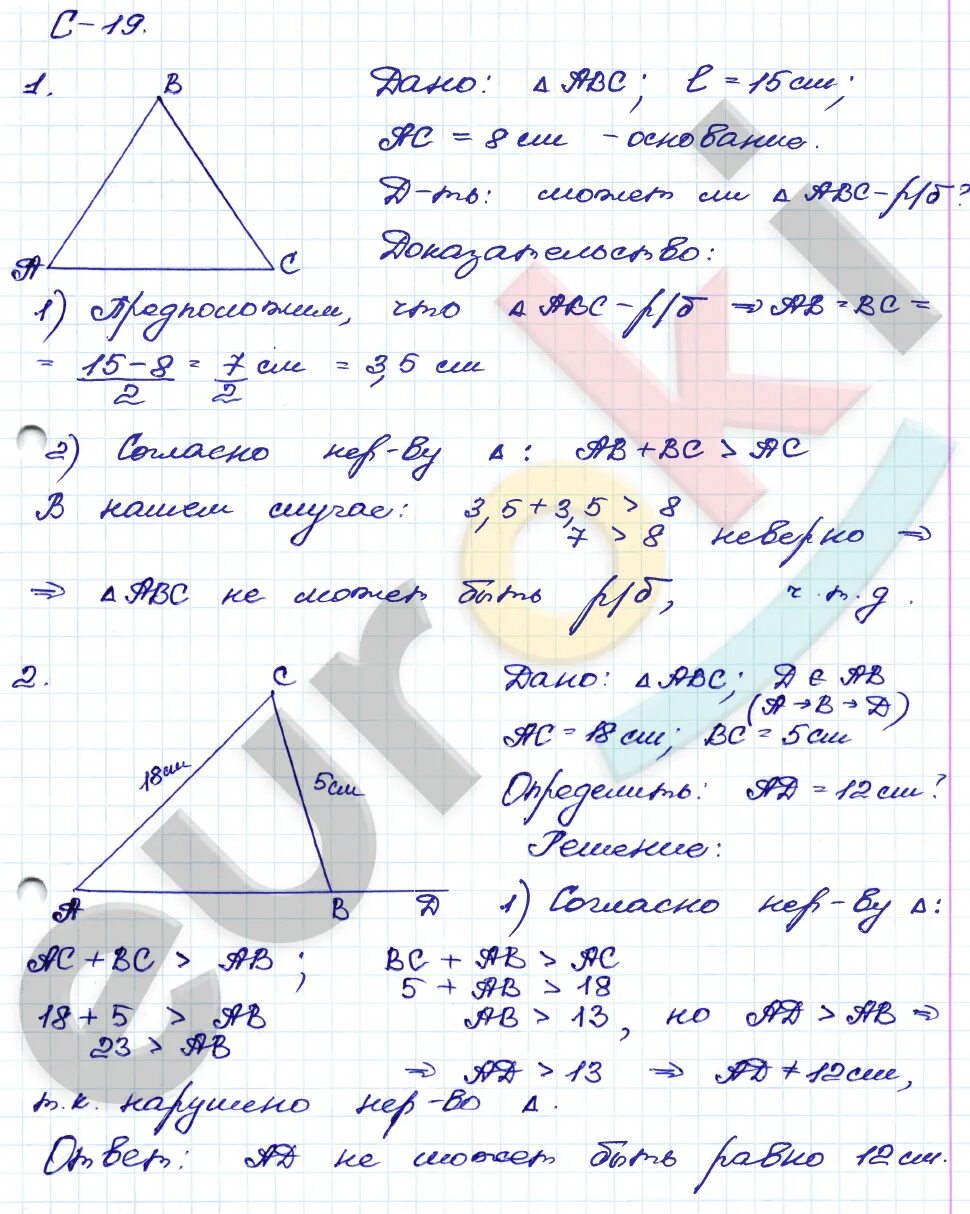 С-19.
1.
B
A
C
Дано: △ ABC; l = 15 см;
AC = 8 см - основание.
Д-ть: может ли △ ABC - р/б?
Доказательство:
1) Предположим, что △ ABC - р/б ⇒ AB = BC =
= 15-8/2 = 7/2 см = 3,5 см
2) Согласно нер-ву △: AB + BC > AC
В нашем случае: 3,5 + 3,5 > 8
7 > 8 неверно ⇒
⇒ △ ABC не может быть р/б, ч.т.д.
2.
C
18 см
5 см
A
B
D
Дано: △ ABC; D ∈ AB
(A → B → D)
AC = 18 см; BC = 5 см
Определить: AD = 12 см?
Решение:
1) Согласно нер-ву △:
AC + BC > AB; BC + AB > AC
5 + AB > 18
18 + 5 > AB AB > 13, но AD > AB ⇒
23 > AB
⇒ AD > 13 ⇒ AD ≠ 12 см,
т.к. нарушено нер-во △.
Ответ: AD не может быть равно 12 см.
euroki